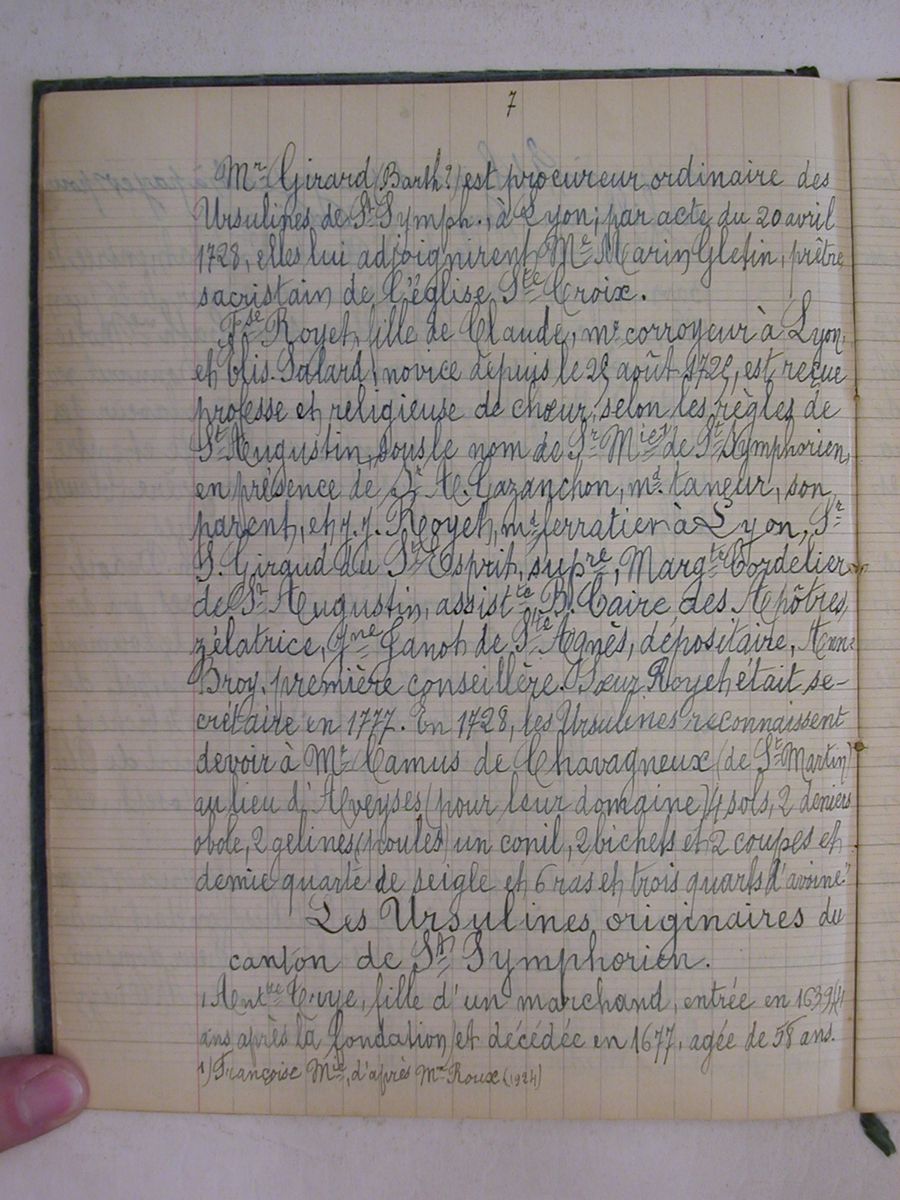 7
"Mr Girard (Barth?) est procureur ordinaire des
Ursulines de St Symph., à Lyon; par acte du 20 avril
1728, elles lui adjoignirent Mr Marin Gletin, prêtre
sacristain de l'église Ste Croix.
Fse Royet, fille de Claude, mr corroyeur à Lyon,
et Elis. Salard, novice depuis le 29 août 1729, est reçue
professe et religieuse de chœur, selon les règles de
St Augustin, sous le nom de Sr de St Symphorien,
en présence de Sr A. Cazanchon, md taneur, son
parent, et J. J. Royet, md ferratier à Lyon, Sr
G. Giraud du St Esprit, supre, Margte Cordelier
de St Augustin, assistte B. Caire des Apôtres,
zélatrice, Jne Ganot de Ste Agnès, dépositaire, Ann=
Broy, première conseillère. Sœur Royet était se-
crétaire en 1777. En 1728, les Ursulines reconnaissent
devoir à Mr Camus de Chavagneux (de St Martin)
au lieu d'Aveyses (pour leur domaine) 4 sols, 2 deniers
obole, 2 gelines (poules) un conil, 2 bichets et 2 coupes et
demie quarte de seigle et 6 ras et trois quarts d'avoine"
Les Ursulines originaires du
canton de St Symphorien.
entrée en 1639 (4
ans après la fondation) et décédée en 1677, agée de 58 ans.
1) Françoise Mie, d'après Mr Roux (1924)